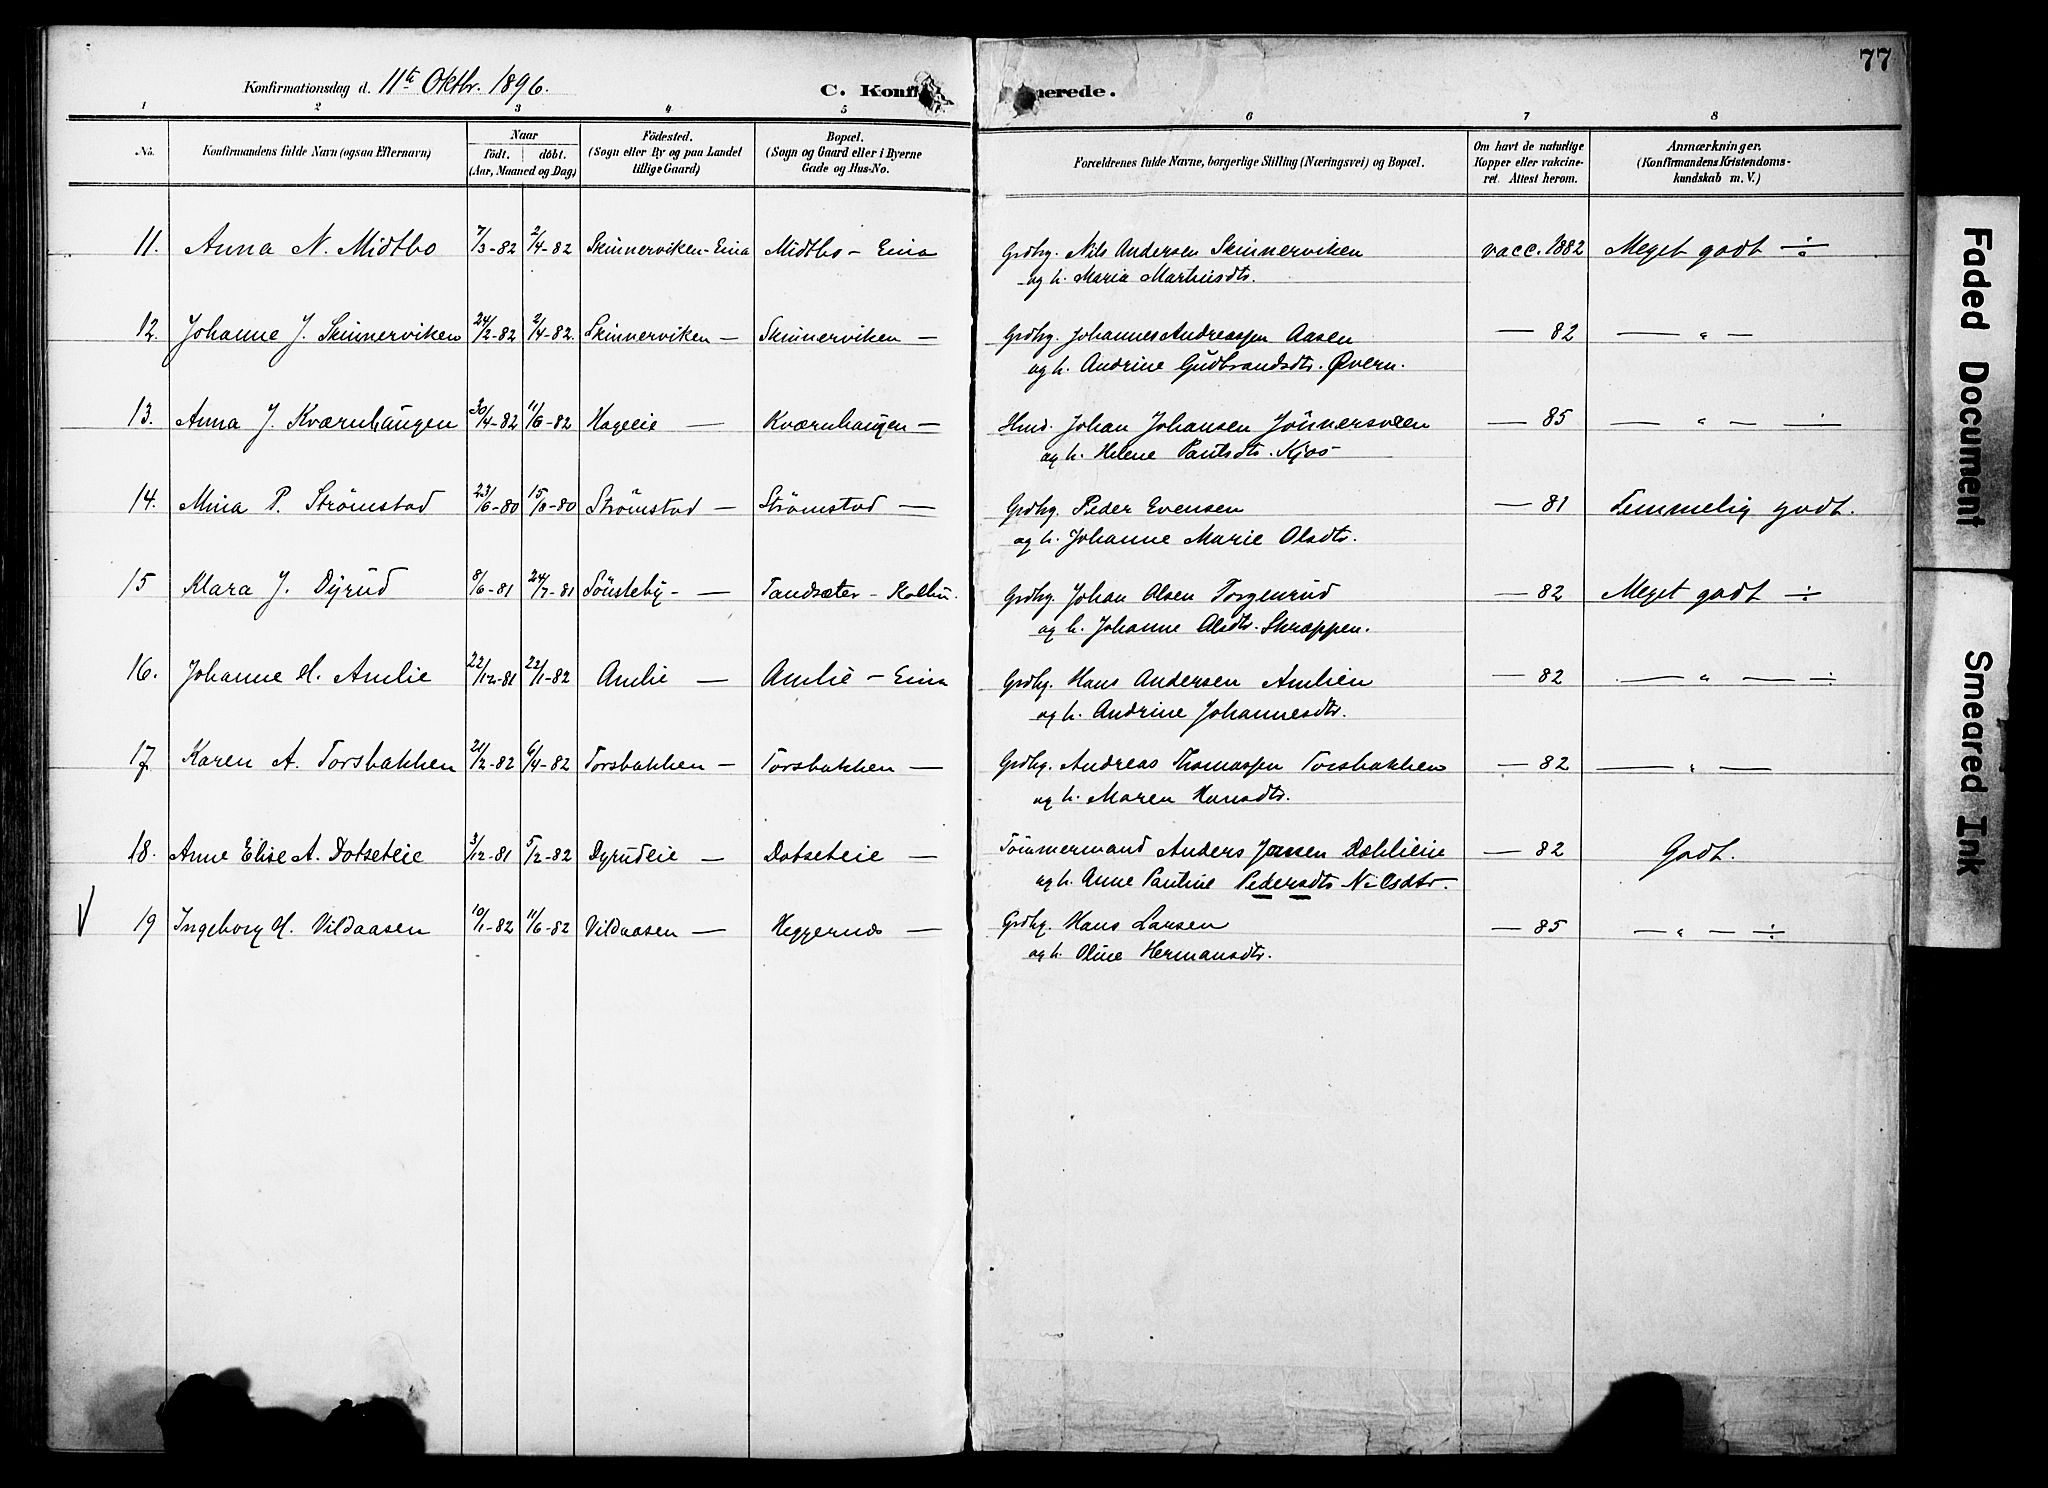 77
Konfirmationsdag d. 11te Oktbr. 1896.
C. Konfirmerede.
1 2 3 4 5 6 7 8
No. Konfirmandens fulde Navn (ogsaa Efternavn) Naar födt. döbt. (Aar, Maaned og Dag) Födested. (Sogn eller By og paa Landet tillige Gaard) Bopæl. (Sogn og Gaard eller i Byerne Gade og Hus-No. Forældrenes fulde Navne, borgerlige Stilling (Næringsvei) og Bopæl. Om havt de naturlige Kopper eller vakcineret. Attest herom. Anmærkninger. (Konfirmandens Kristendomskundskab m. V.)
11. Anna N. Midtbo 7/3-82 2/4-82 Skinnerviken-Eina Midtbo - Eina Grdbg. Nils Andersen Skinnerviken vacc. 1882 Meget godt ÷
og h. Maria Marthisdtr.
12. Johanne J. Skinnerviken 24/2-82 2/4-82. Skinnerviken — Skinnerviken — Grdbg. Johannes Andreassen Aasen — 82 — " —
og h. Andrine Gudbrandsdtr. Øvern.
13. Anna J. Kværnhaugen 30/4-82 11/6-82 Hageeie — Kværnhaugen — Hmd. Johan Johansen Jönnersveen — 85 — " — ÷
og h. Helene Paulsdtr. Kjos
14. Mina P. Strømstad 23/6-80 15/8-80 Strømstad — Strømstad — Grdbg. Peder Evensen — 81 Temmelig godt.
og h. Johanne Marie Olsdtr.
15 Klara J. Dyrud 8/6-81 24/7-81 Sönsteby - — Tandsæter - Kolbu. Grdbg. Johan Olsen Torgenrud — 82 Meget godt ÷
og h. Johanne Olsdtr. Skræppen.
16. Johanne H. Amlie 22/12-81 22/1-82 Amlie — Amlie - Eina Grdbg. Hans Andersen Amlien — 82 — " — ÷
og h. Andrine Johannesdtr.
17. Karen A. Torsbakken 21/2-82 6/4-82 Torsbakken — Torsbakken — Grdbg. Andreas Thomassen Torsbakken — 82 — " —
og h. Maren Hansdtr.
18. Anne Elise A. Dotseteie 3/12-81 5/2-82 Dyrudeie — Dotseteie — Tömmermand Anders Jansen Dahlieie — 82 Godt.
og h. Anne Pauline Pedersdtr Nilsdtr.
V 19 Ingeborg H. Vildaasen 10/1-82 11/6-82 Vildaasen — Heggerud — Grdbg. Hans Larsen — 85 — " — ÷
og h. Oline Hermansdtr.
Faded Document
Smeared Ink